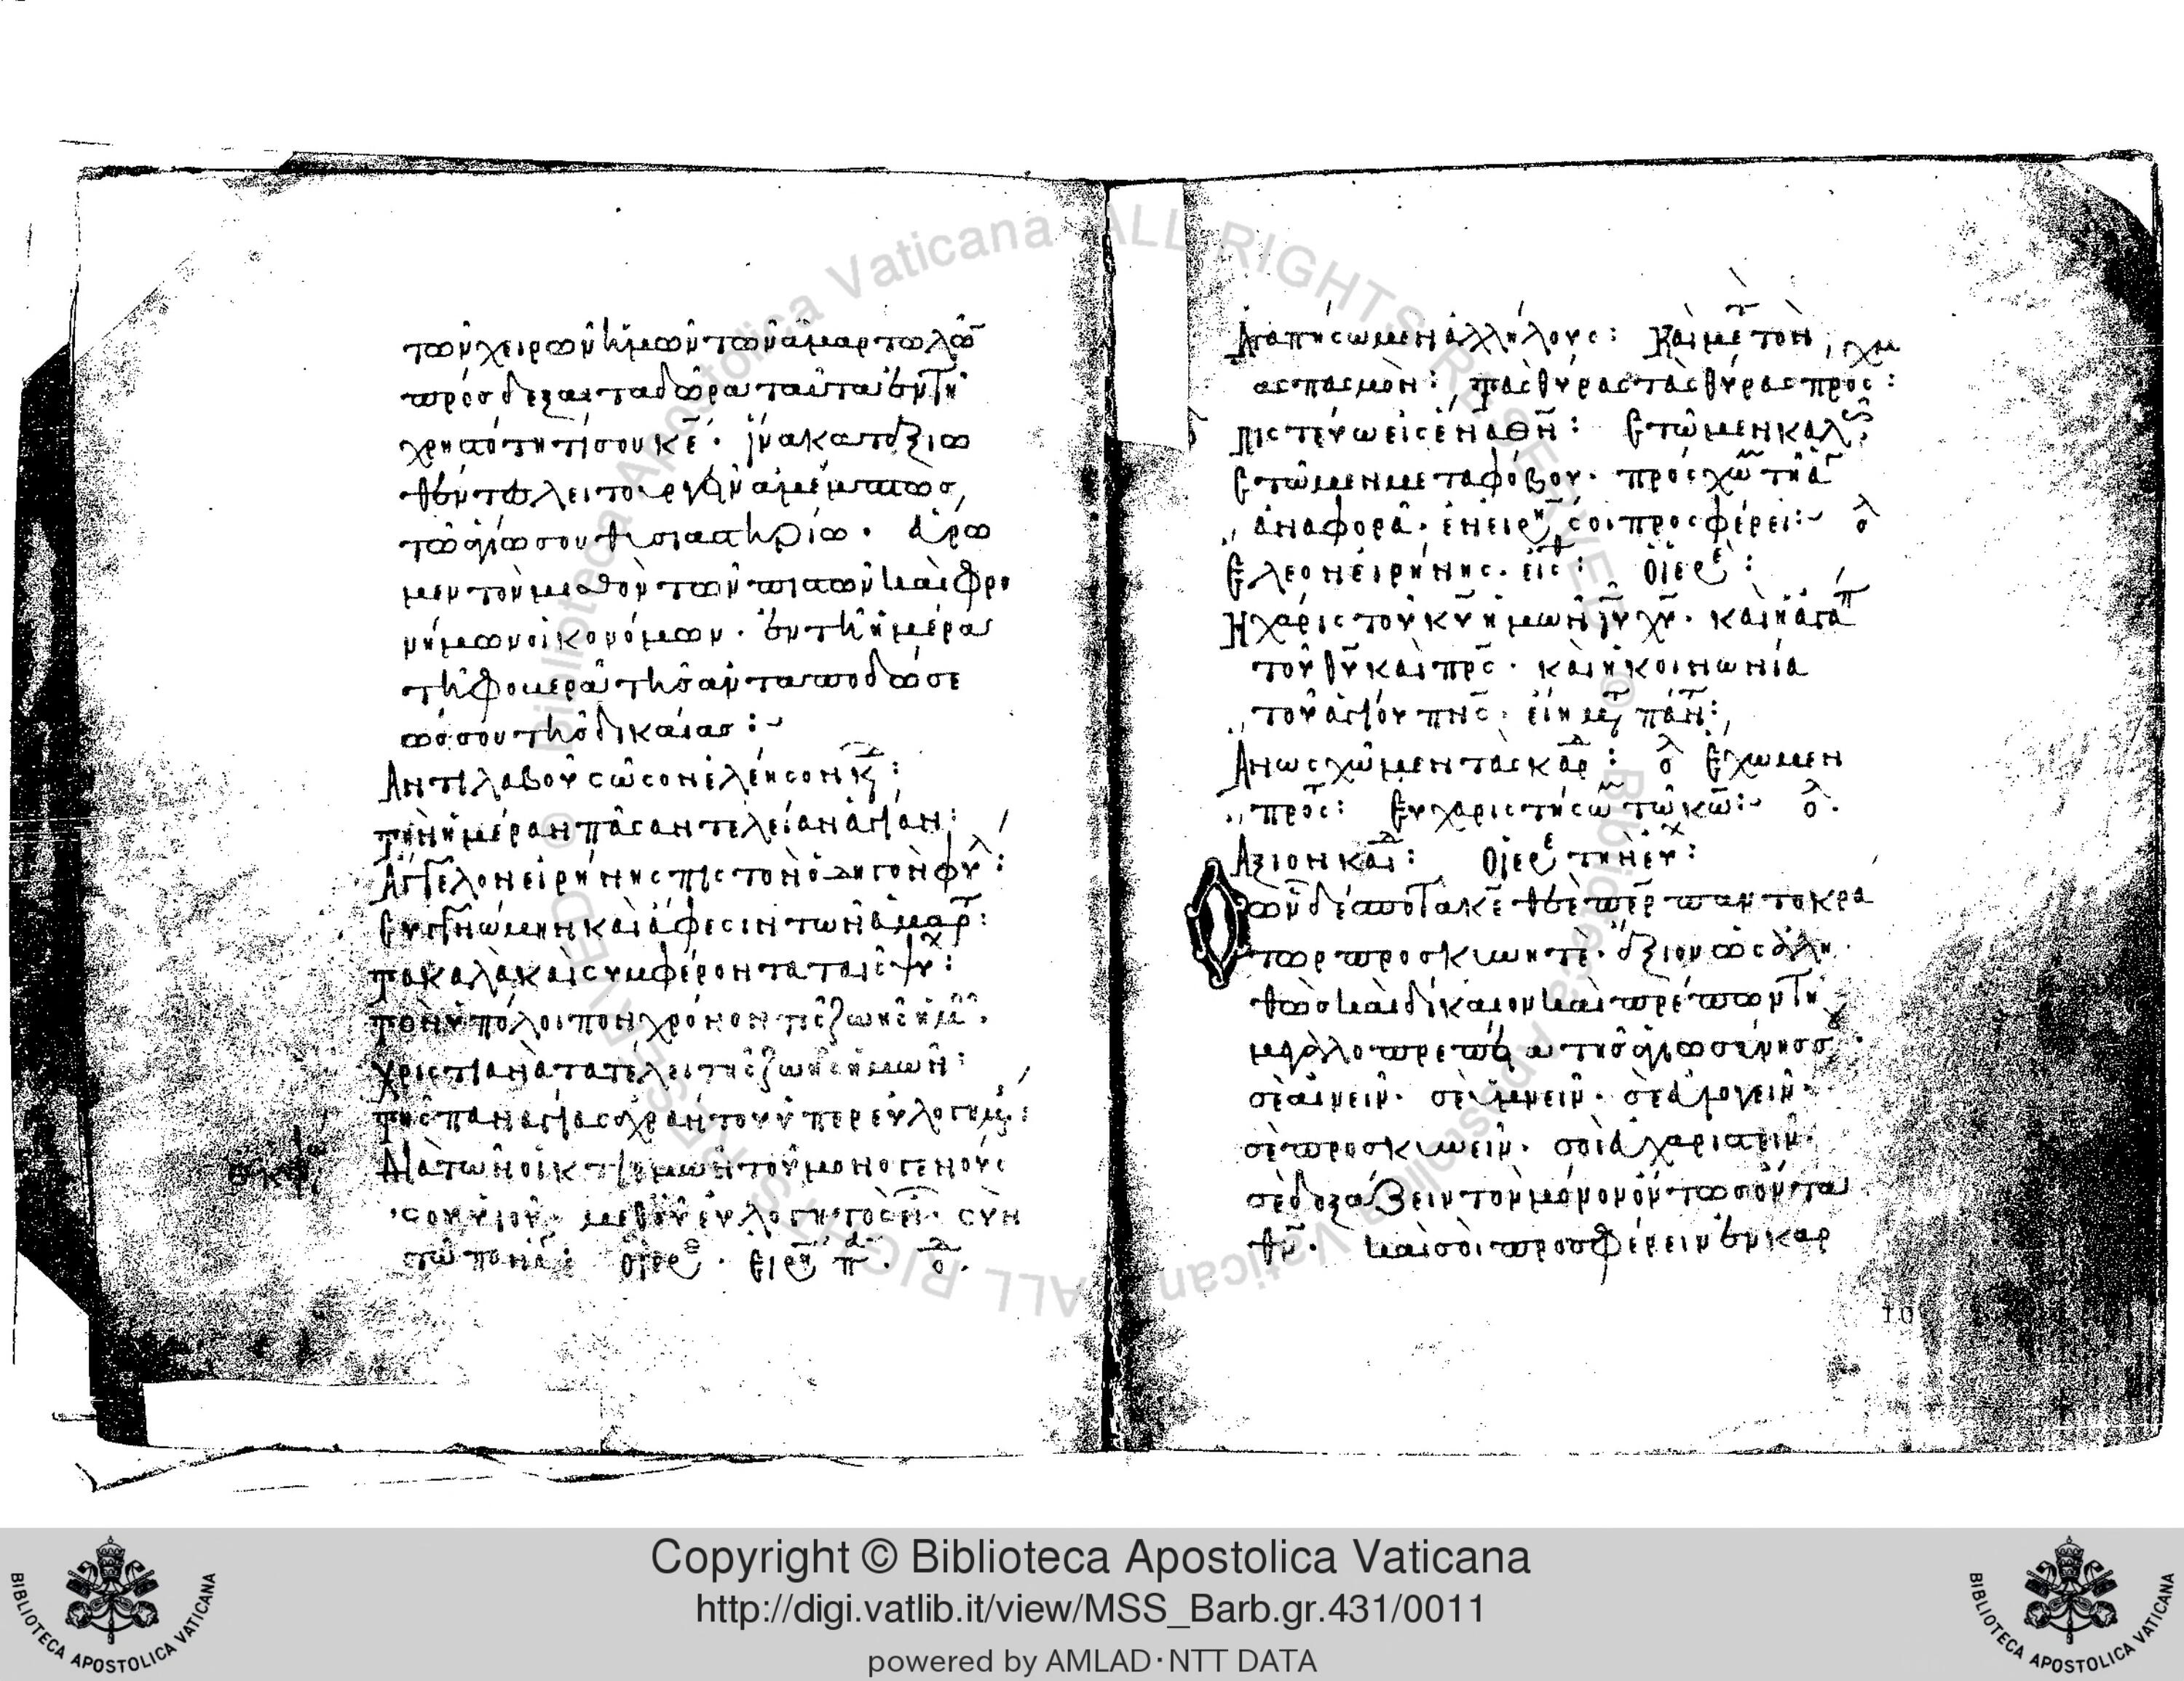 τῶν χειρῶν ἡμῶν τῶν ἁμαρτωλῶ
πρόσδεξαι τὰ δῶρα ταῦτα ἐν τῆ
χρηστότητί σου κε. ἵνα καταξιω
θέντες λειτουργεῖν ἀμέμπτως,
τῶ ἁγίω σου θυσιαστηρίω. εὕρω
μεν τὸν μισθὸν τῶν πιστῶν καὶ φρο
νήμων οἰκονόμων. ἐν τῆ ἡμέρα
τῆ φοβερᾶ τῆς ἀνταποδόσε
ώς σου τῆς δικαίας :~
Ἀντιλαβοῦ σῶσον ἐλέησον
τὴν ἡμέραν πᾶσαν τελείαν ἁγίαν:
Ἄγγελον εἰρήνης πιστὸν ὁδηγὸν φυλ:
Συγγνώμην καὶ ἄφεσιν τῶν ἁμαρτ:
τὰ καλὰ καὶ συμφέροντα ταῖς ψυχ:
τὸν ὑπόλοιπον χρόνον τῆς ζωῆς ἡμ.
χριστιανὰ τὰ τέλει τῆς ζωῆς ἡμῶν:
τῆς παναγίας ἀχράντου ὑπερευλογημ:
ἐκφ
Διὰ τῶν οἰκτιρμῶν τοῦ μονογενοῦς
σου υἱοῦ. μεθ' οὗ εὐλογητὸς εἶ. σὺν
τῶ παναγ: ὁ ἱερε. Εἰρη π. ὁ λ.
Ἀγαπήσωμεν ἀλλήλους: Καὶ μετ τὸν
ἀσπασμὸν: τὰς θύρας τὰς θύρας προς:
πιστεύω εἰς ἕνα θν: Στῶμεν καλ:
Στῶμεν μετὰ φόβου. πρόσχω τη ἁ
ἀναφορᾶ. ἐν εἰρη σοι προσφέρει:~ ὁ λ
Ἔλεον εἰρήνης. ὁ ἱερε:
Ἡ χάρις τοῦ κυ ἡμῶν ιυ χυ. καὶ ἡ ἀγάπ
τοῦ θυ καὶ πρς. καὶ ἡ κοινωνία
τοῦ ἁγίου πνς. εἴη μετ πάντ:
Ἄνω σχῶμεν τὰς καρδ: ὁ λ Ἔχωμεν
προς: Εὐχαριστήσω τῶ κω:~ ὁ λ.
Ἄξιον καὶ δ: ὁ ἱερε τὴν εὐχ:
Ὁ ὢν δέσποτα κε θεὲ περ παντοκρά
τωρ προσκυνητέ. ἄξιον ὡς ἀλη
θῶς καὶ δίκαιον καὶ πρέπον τῆ
μεγαλοπρεπεία τῆς ἁγιωσύνης σου.
σὲ αἰνεῖν. σὲ ὑμνεῖν. σὲ εὐλογεῖν.
σὲ προσκυνεῖν. σοὶ εὐχαριστεῖν.
σὲ δοξάζειν τὸν μόνον ὄντως ὄντα
θν. καὶ σοὶ προσφέρειν ἐν καρ
10
Copyright © Biblioteca Apostolica Vaticana
http://digi.vatlib.it/view/MSS_Barb.gr.431/0011
powered by AMLAD·NTT DATA
BIBLIOTECA APOSTOLICA VATICANA
BIBLIOTECA APOSTOLICA VATICANA